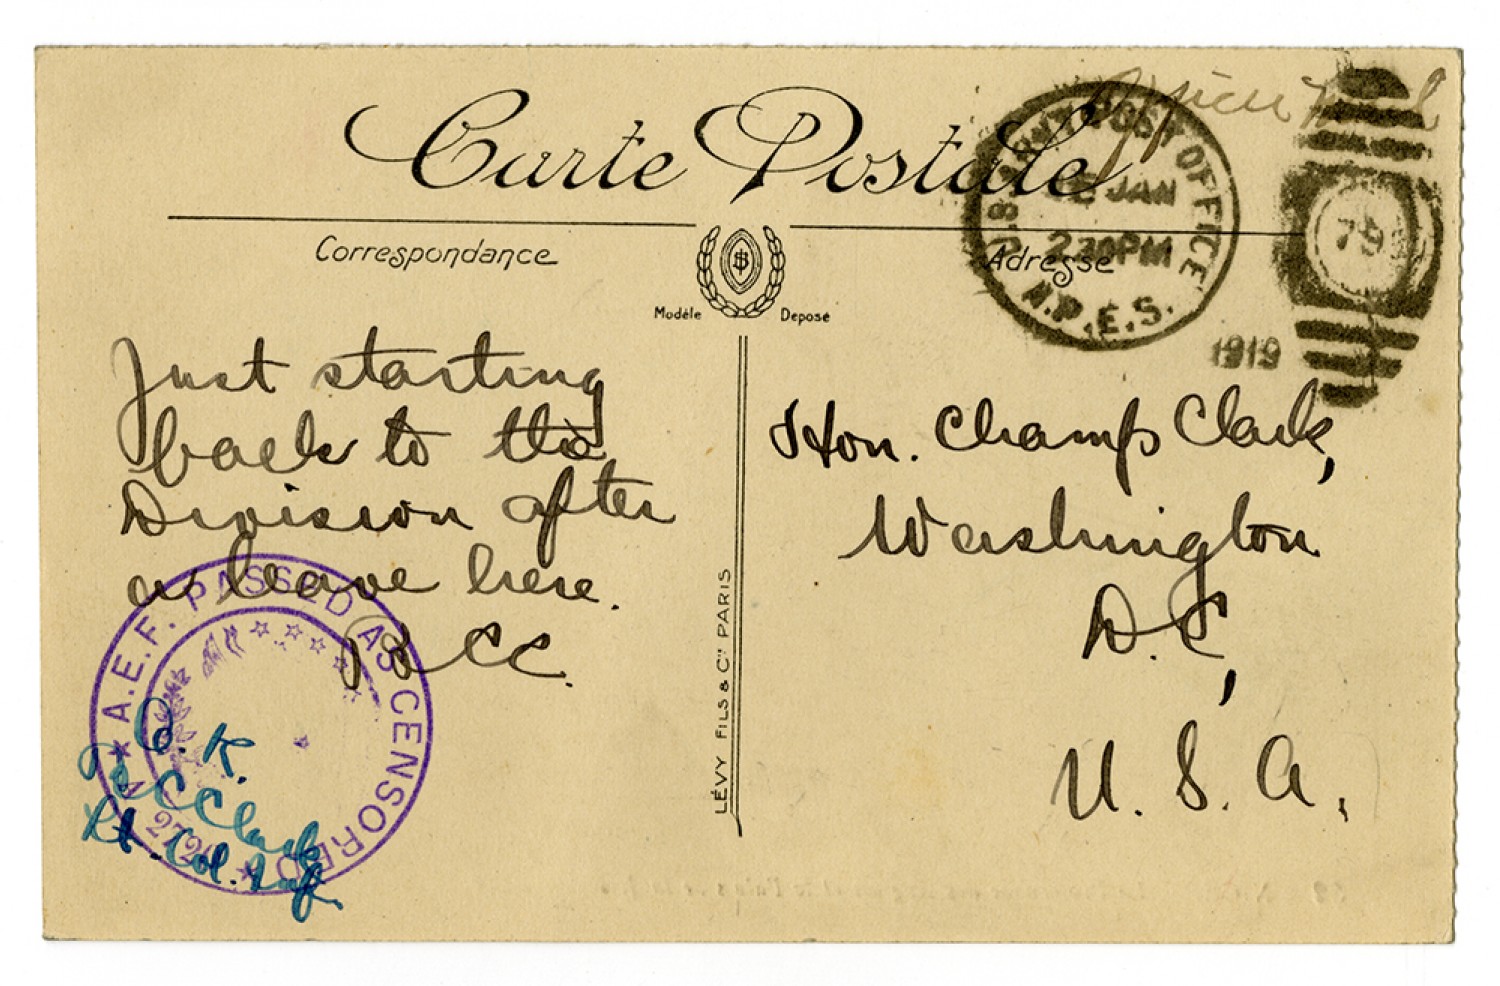 Carte Postale
Correspondance
Adresse
Modèle
Déposé
U.S. ARMY POST OFFICE
JAN
230PM
M.P.E.S.
1919
Just starting
back to the
Division after
a leave here.
BCC.
A.E.F. PASSED AS CENSORED
O.K.
Clark
Lt. Col. Inf.
LÉVY FILS & Cie PARIS
Hon. Champ Clark,
Washington
D.C,
U. S. A.